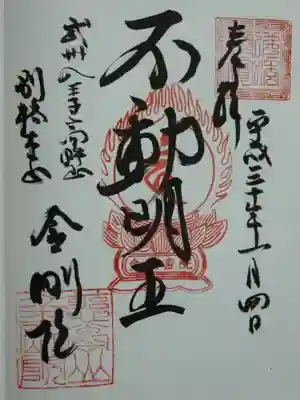 奉拝
平成三十年十一月四日
不動明王
武州八王子高野山
別格本山
金剛院